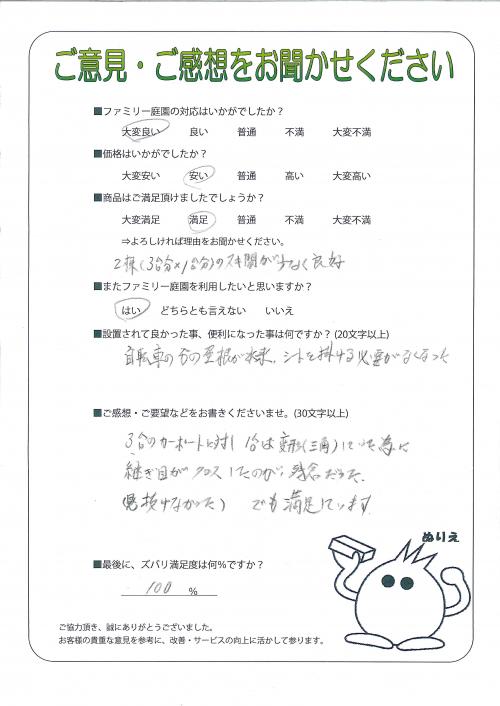 ご意見・ご感想をお聞かせください
■ファミリー庭園の対応はいかがでしたか？
大変良い 良い 普通 不満 大変不満
■価格はいかがでしたか？
大変安い 安い 普通 高い 大変高い
■商品はご満足頂けましたでしょうか？
大変満足 満足 普通 不満 大変不満
⇒よろしければ理由をお聞かせください。
2棟(3台分×1台分)のスキ間が少なく良好
■またファミリー庭園を利用したいと思いますか？
はい どちらとも言えない いいえ
■設置されて良かった事、便利になった事は何ですか？(20文字以上)
自転車の分の屋根が出来、シートを掛ける必要がなくなった
■ご感想・ご要望などをお書きくださいませ。(30文字以上)
3台のカーポートに対し1台は変形(三角)していた為に
継ぎ目がクロスしたのが、残念だった
(見抜けなかった) でも満足しています
ぬりえ
■最後に、ズバリ満足度は何％ですか？
100 %
ご協力頂き、誠にありがとうございました。
お客様の貴重な意見を参考に、改善・サービスの向上に活かして参ります。